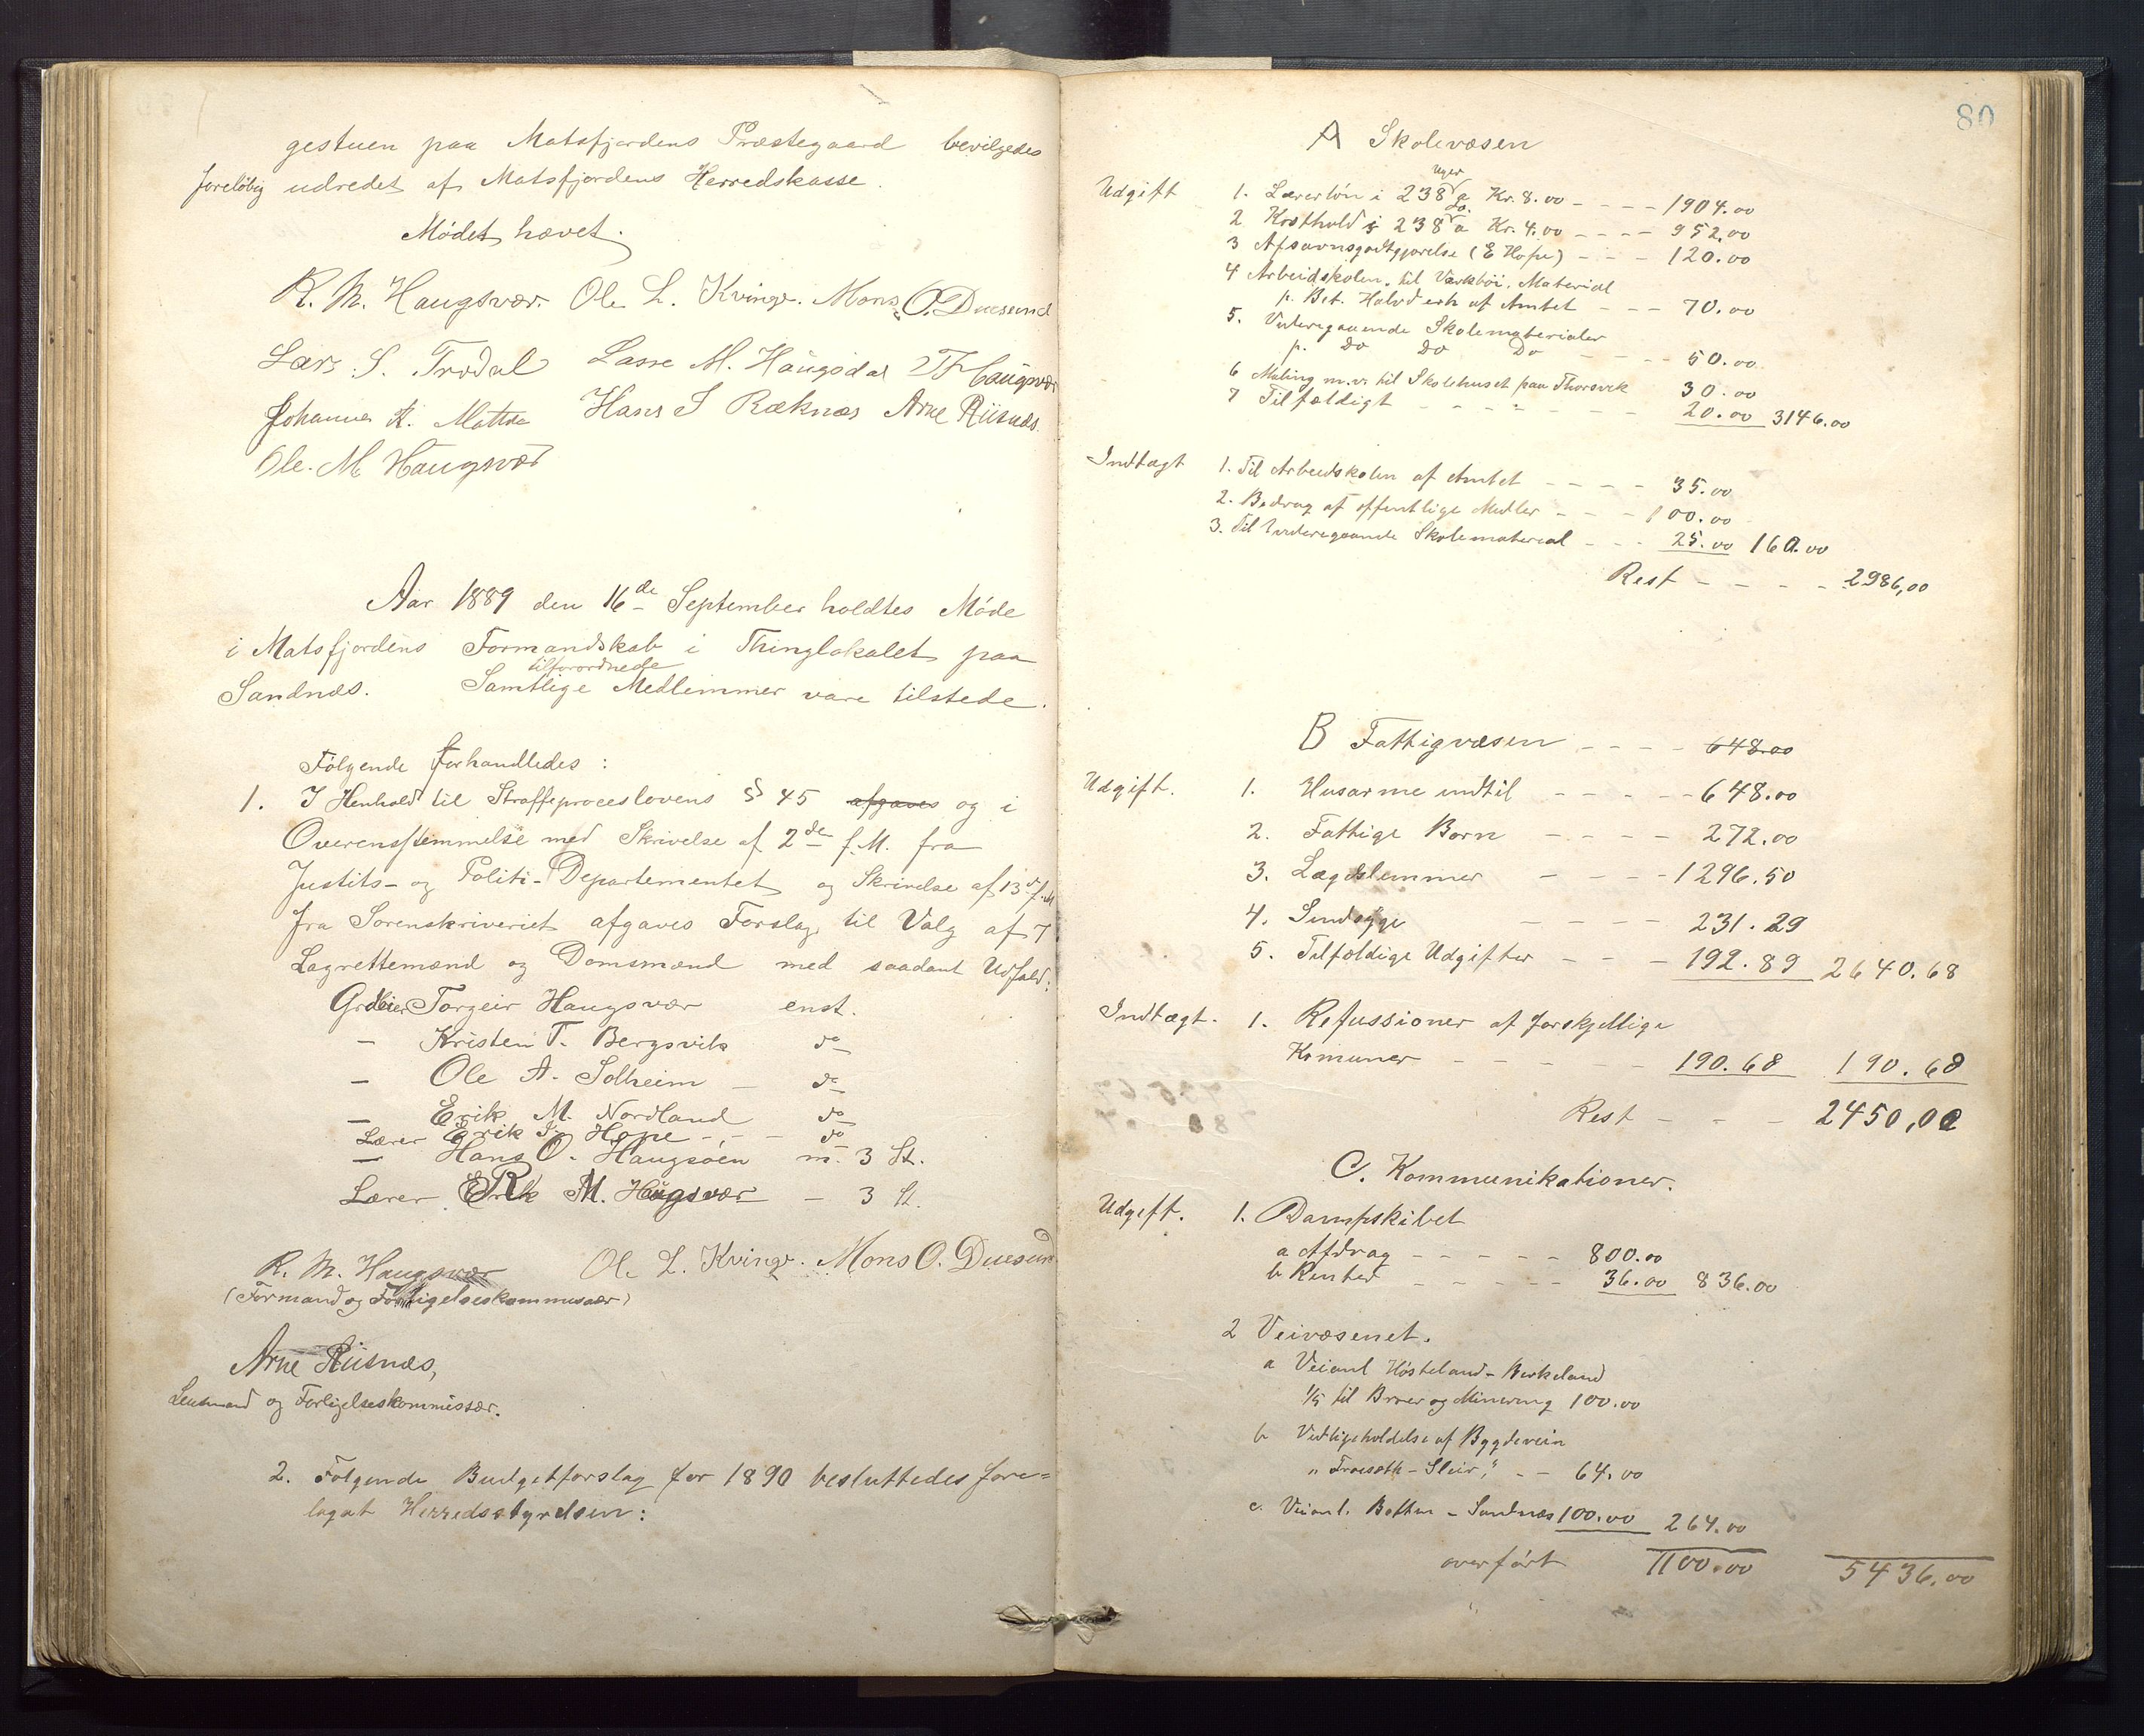 gestuen paa Matsfjordens Præstegaard bevilgedes
foreløbig udredet af Matsfjordens Herredskasse.
Mødet hævet.
R. M. Haugsvær. Ole L. Kvinge. Mons O. Duesund
Lars S. Trodal Lasse M. Haugsdal
Johannes A. Hans J Ræknæs Arne Riisnæs.
Ole. M Haugsvær
Aar 1889 den 16de September holdtes Møde
i Matsfjordens Formandskab i Thinglokalet paa
tilforordnede
Sandnæs. Samtlige Medlemmer vare tilstede.
Følgende forhandledes :
1. I Henhold til Straffeproceslovens § 45 afgaves og i
Overensstemmelse med Skrivelse af 2de f.M. fra
Justits- og Politi-Departementet og Skrivelse af 13de f.M
fra Sorenskriveriet afgaves Forslag til Valg af 7
Lagrettemænd og Domsmænd med saadant Udfald:
Grdbier Torgeir Haugsvær enst.
- Kristen T. Bergsvik do
- Ole A. Solheim - do
- Erik M. Nordland do
Lærer Erik J. Hope - - do
- Hans O. Haugsøen m. 3 St.
Lærer Erik M. Haugsvær - 3 St.
R. M. Haugsvær Ole L. Kvinge. Mons O. Duesund
(Formand og Forligelseskommissær)
Arne Riisnæs,
Lensmand og Forligelseskommissær.
2. Følgende Budgetforslag for 1890 besluttedes fore=
lagt Herredsstyrelsen:
80
A Skolevæsen
Uger
Udgift 1. Lærerløn i 238 a Kr. 8.00 - - - - 1904.00
do.
2 Kosthold i 238 a Kr. 4.00 - - - - 952,00
3 Afsavnsgodtgjørelse (E Hope) - - - 120.00
4 Arbeidskolen, til Værktøi, Material
p. Bet. Halvd erh af Amtet - - - 70.00
5. Undervisgaaende Skolematerialer
p. Do Do Do - - - - 50.00
6 Maling m.v. til Skolehuset paa Thorsvik 30.00
7 Tilfældigt - - - - - - 20.00 3146.00
Indtægt 1. Til Arbeidskolen af Amtet - - - - 35.00
2. Bidrag af offentlige Midler - - - 100.00
3. Til Skolematerial - - - 25.00 160.00
Rest - - - - 2986,00
B Fattigvæsen - - - - 648.00
Udgift. 1. Husarme indtil - - - - - 648.00
2. Fattige Børn - - - - 272.00
3. Lægdslemmer - - - - 1296.50
4. Sindsyge - - - - 231.29
5. Tilfældige Udgifter - - - 192.89 2640.68
Indtægt. 1. Refussioner af forskjellige
Komuner - - - - - 190.68 190.68
Rest - - - 2450,00
C. Kommunikationer.
Udgift. 1. Dampskibet
a Afdrag - - - - - 800.00
b Renter - - - - - 36.00 836.00
2 Veivæsenet.
a Veianl Høsteland - Birkeland
1/5 til Broer og Minering 100.00
b Vedligeholdelse af Bygdeveien
- - 64.00
c. Veianl. Botten - Sandnæs 100.00 264.00
overført 1100.00 5436.00